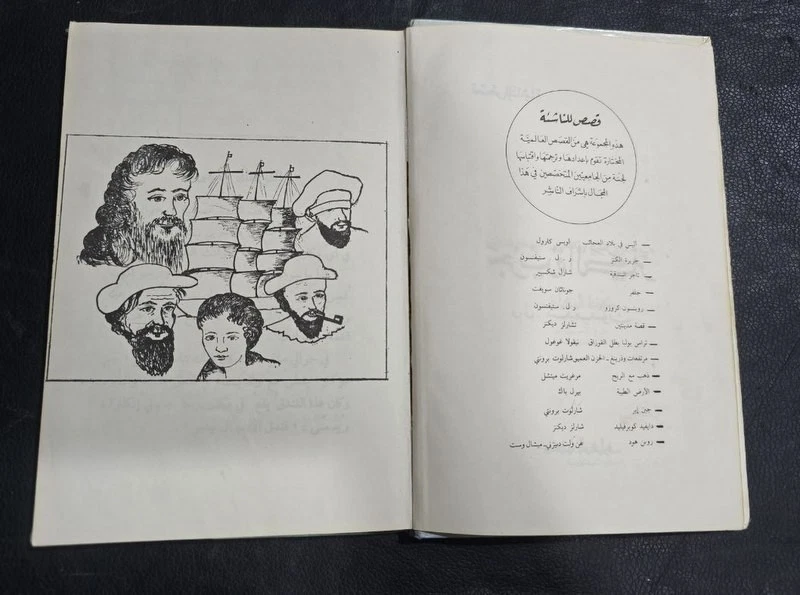 قصص للناشئة
هذه المجموعة هي من القصص العالمية
المختارة تقوم بإعدادها وترجمتها واقتباسها
لجنة من الجامعيين المتخصصين في هذا
المجال بإشراف الناشر
— أليس في بلاد العجائب لويس كارول
— جزيرة الكنز ر. ل. ستيفنسون
— تاجر البندقية شارل شكسبير
— جلفر جوناثان سويفت
— روبنسون كروزو ر. ل. ستيفنسون
— قصة مدينتين تشارلز ديكنز
— تراس بولبا بطل القوزاق نيقولا غوغول
— مرتفعات وذرينغ - الحزن العميق شارلوت برونتي
— ذهب مع الريح مرغريت ميتشل
— الأرض الطيبة بيرل باك
— جين إير شارلوت برونتي
— دايفيد كوبرفيلد شارلز ديكنز
— روبن هود عن ولت ديزني - ميشال وست